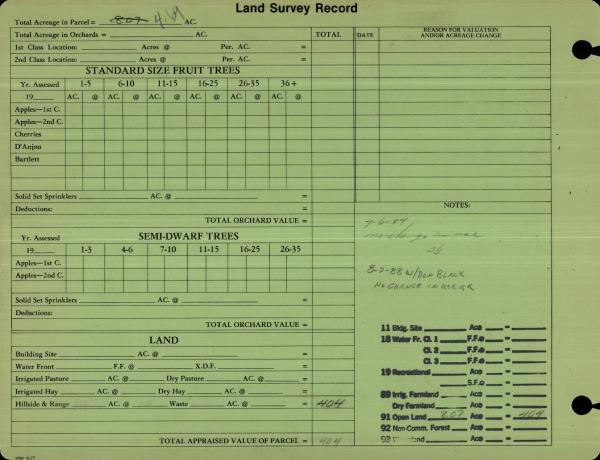 Land Survey Record
Total Acreage in Parcel = 8.07 4.61 AC.
Total Acreage in Orchards = AC. TOTAL DATE REASON FOR VALUATION AND/OR ACREAGE CHANGE
1st Class Location: Acres @ Per. AC. =
2nd Class Location: Acres @ Per. AC. =
STANDARD SIZE FRUIT TREES
Yr. Assessed 1-5 6-10 11-15 16-25 26-35 36+
19 AC. @ AC. @ AC. @ AC. @ AC. @ AC. @
Apples—1st C.
Apples—2nd C.
Cherries
D'Anjou
Bartlett
Solid Set Sprinklers AC. @ =
Deductions: =
TOTAL ORCHARD VALUE =
SEMI-DWARF TREES
Yr. Assessed 1-3 4-6 7-10 11-15 16-25 26-35
19 AC. @ AC. @ AC. @ AC. @ AC. @ AC. @
Apples—1st C.
Apples—2nd C.
Solid Set Sprinklers AC. @ =
Deductions:
TOTAL ORCHARD VALUE =
LAND
Building Site AC. @ =
Water Front F.F. @ X.D.F. =
Irrigated Pasture AC. @ Dry Pasture AC. @ =
Irrigated Hay AC. @ Dry Hay AC. @ =
Hillside & Range AC. @ Waste AC. @ = 404
TOTAL APPRAISED VALUE OF PARCEL = 404
NOTES:
7-6-84
no change in use
8-2-88 W/ Don Black
No change in
11 Bldg. Site Ac@ =
18 Water Fr. Cl. 1 F.F.@ =
Cl. 2 F.F.@ =
Cl. 3 F.F.@ =
19 Recreational Ac@ =
S.F.@ =
89 Irrig. Farmland Ac@ =
Dry Farmland Ac@ =
91 Open Land 8.07 Ac@ = 404
92 Non-Comm. Forest Ac@ =
93 Ac@ =